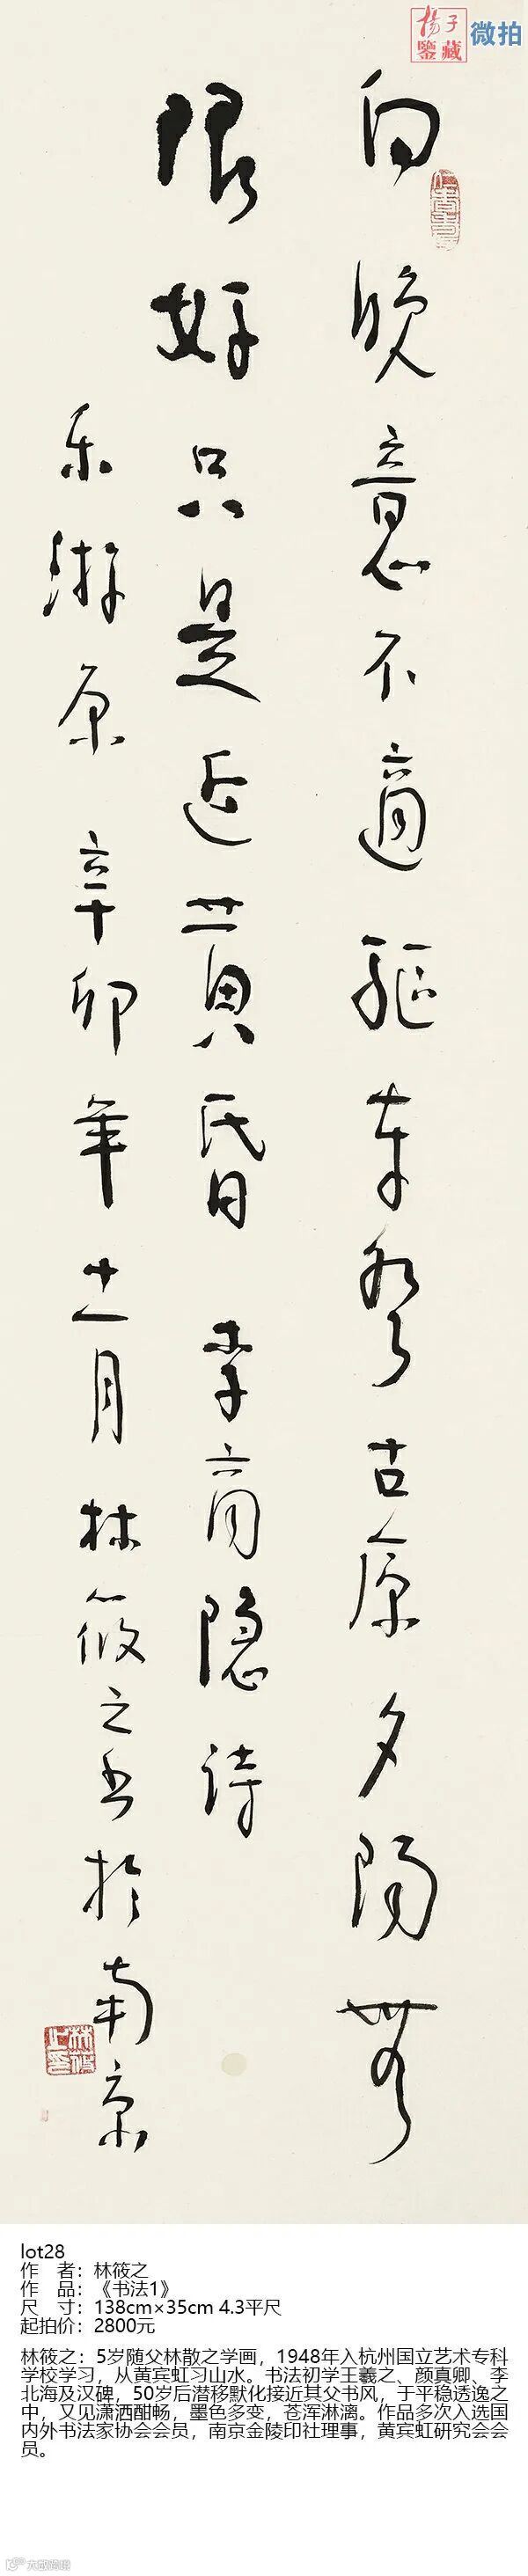 揚子
鑒藏
微拍
向晚意不適驅車登古原夕陽無
限好只是近黄昏 李商隐诗
樂游原 辛卯年十一月林筱之書於南京
林筱
之印
lot28
作 者：林筱之
作 品：《书法1》
尺 寸：138cm×35cm 4.3平尺
起拍价：2800元
林筱之：5岁随父林散之学画，1948年入杭州国立艺术专科
学校学习，从黄宾虹习山水。书法初学王羲之、颜真卿、李
北海及汉碑，50岁后潜移默化接近其父书风，于平稳透逸之
中，又见潇洒酣畅，墨色多变，苍浑淋漓。作品多次入选国
内外书法家协会会员，南京金陵印社理事，黄宾虹研究会会
员。